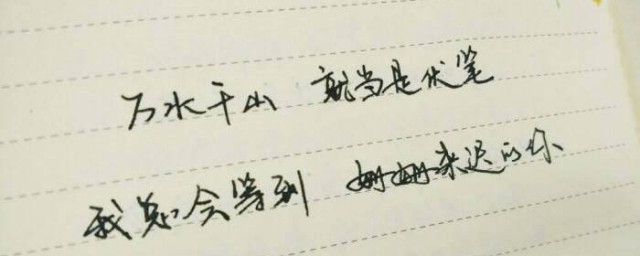 万水千山 就当是伏笔
我总会等到 姗姗来迟的你